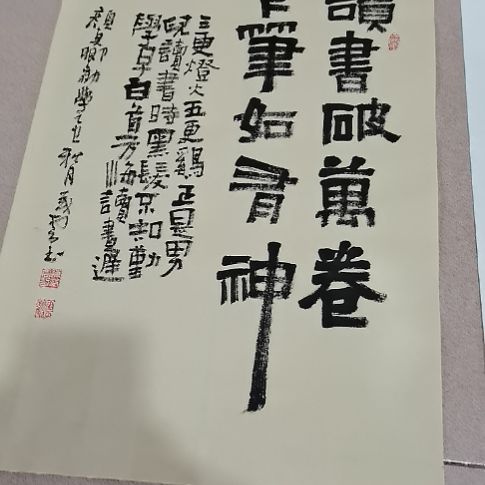 讀書破萬卷
下筆如有神
三更燈火五更鷄正是男
兒讀書時黑髮不知勤
學早白首方悔讀書遲